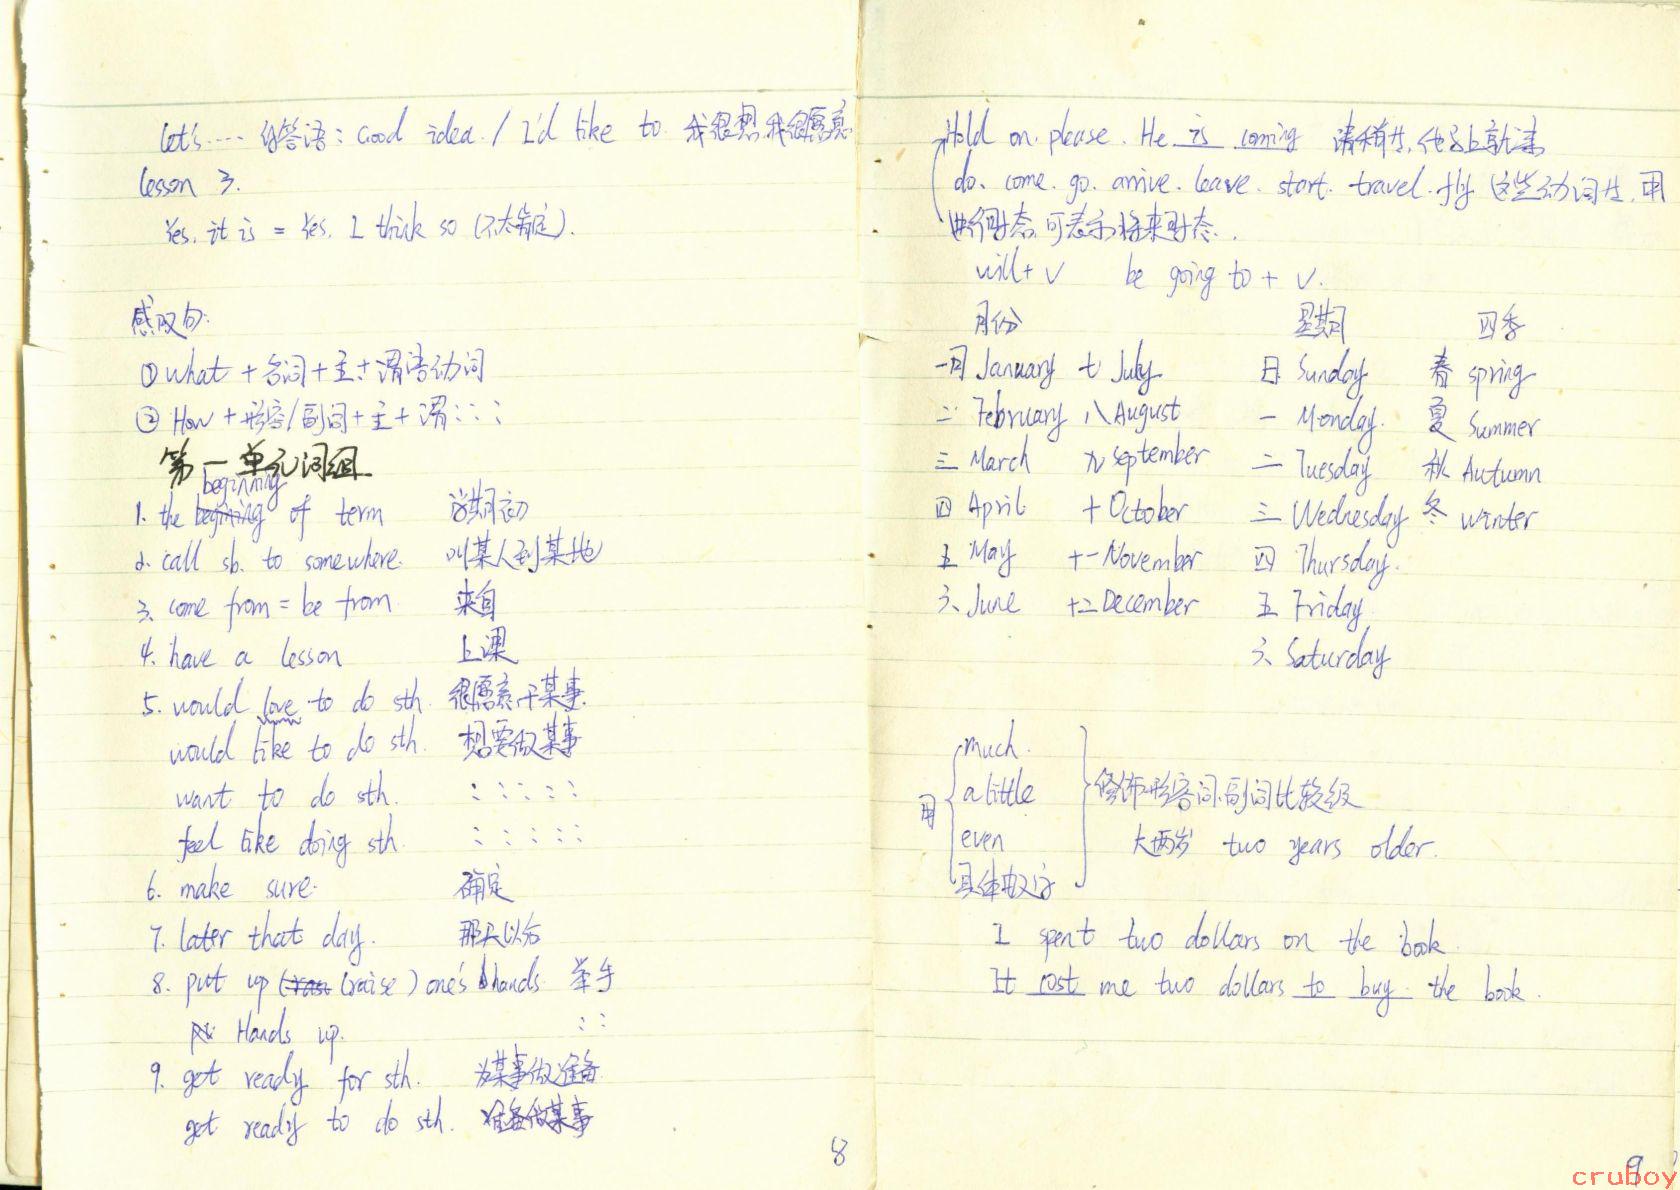 Let's …… 的答语: Good idea. / I'd like to. 我很想,我很愿意
Lesson 3.
Yes, it is = Yes, I think so (不太肯定).
感叹句:
① What + 名词 + 主 + 谓语动词
② How + 形容/副词 + 主 + 谓 : : :
第一单元词组
1. the beginning of term 学期初
2. call sb. to somewhere. 叫某人到某地
3. come from = be from 来自
4. have a lesson 上课
5. would love to do sth. 很愿意干某事.
would like to do sth. 想要做某事
want to do sth. : : : : :
feel like doing sth. : : : : :
6. make sure. 确定
7. later that day. 那天以后
8. put up (raise) one's hands. 举手
Hands up. : :
9. get ready for sth. 为某事做准备
get ready to do sth. 准备做某事
8
Hold on, please. He is coming 请稍等,他马上就来
do. come. go. arrive. leave. start. travel. fly 这些动词等,用
进行时态,可表示将来时态.
will + V be going to + V.
月份 星期 四季
一月 January 七 July 日 Sunday 春 spring
二 February 八 August 一 Monday. 夏 Summer
三 March 九 September 二 Tuesday 秋 Autumn
四 April 十 October 三 Wednesday 冬 winter
五 May 十一 November 四 Thursday.
六 June 十二 December 五 Friday
六 Saturday
much.
a little 修饰形容词、副词比较级
用
even 大两岁 two years older.
具体数字
I spent two dollars on the book.
It cost me two dollars to buy the book.
9
cruboy